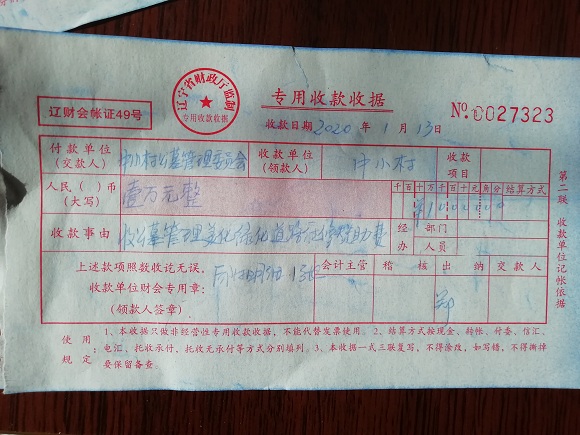 辽宁省财政厅监制
专用收款收据
辽财会帐证49号
专用收款收据
No.0027323
收款日期 2020 年 1 月 13 日
付款单位(交款人) 中小村公墓管理委员会 收款单位(领款人) 中小村 收款项目
人民( )币(大写) 壹万元整 千百十万千百十元角分 结算方式
¥1000000
收款事由 收公墓管理美化绿化道路 赞助费 经办 部门 人员
上述款项照数收讫无误。
收款单位财会专用章:
(领款人签章)
会计主管 稽核 出纳 交款人
郑
第二联 收款单位记帐依据
使用规定:
1、本收据只做非经营性专用收款收据,不能代替发票使用。2、结算方式按现金、转帐、付委、信汇、
电汇、托收承付、托收无承付等方式分别填列。3、本收据一式三联复写,不得涂改,如写错,不得撕掉
要保留备查。